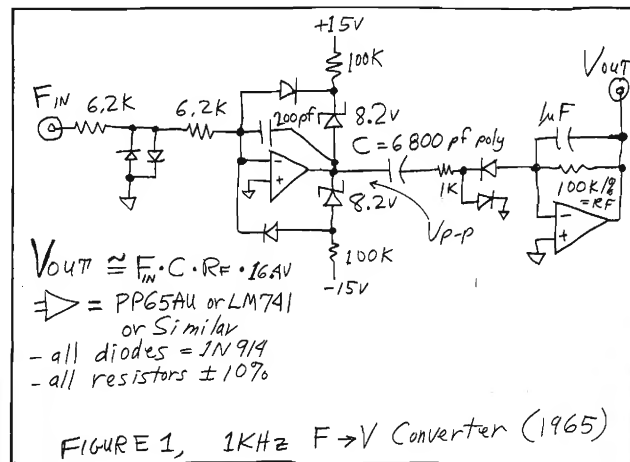 +15V
100K
VOUT
FIN
6.2K
6.2K
200pf
8.2v
C = 6800 pf poly
1µF
1K
100K/%
=RF
8.2v
Vp-p
100K
-15V
VOUT ≅ FIN·C·RF·16.4V
= PP65AU or LM741
or Similar
- all diodes = 1N914
- all resistors ±10%
FIGURE 1, 1KHz F→V Converter (1965)